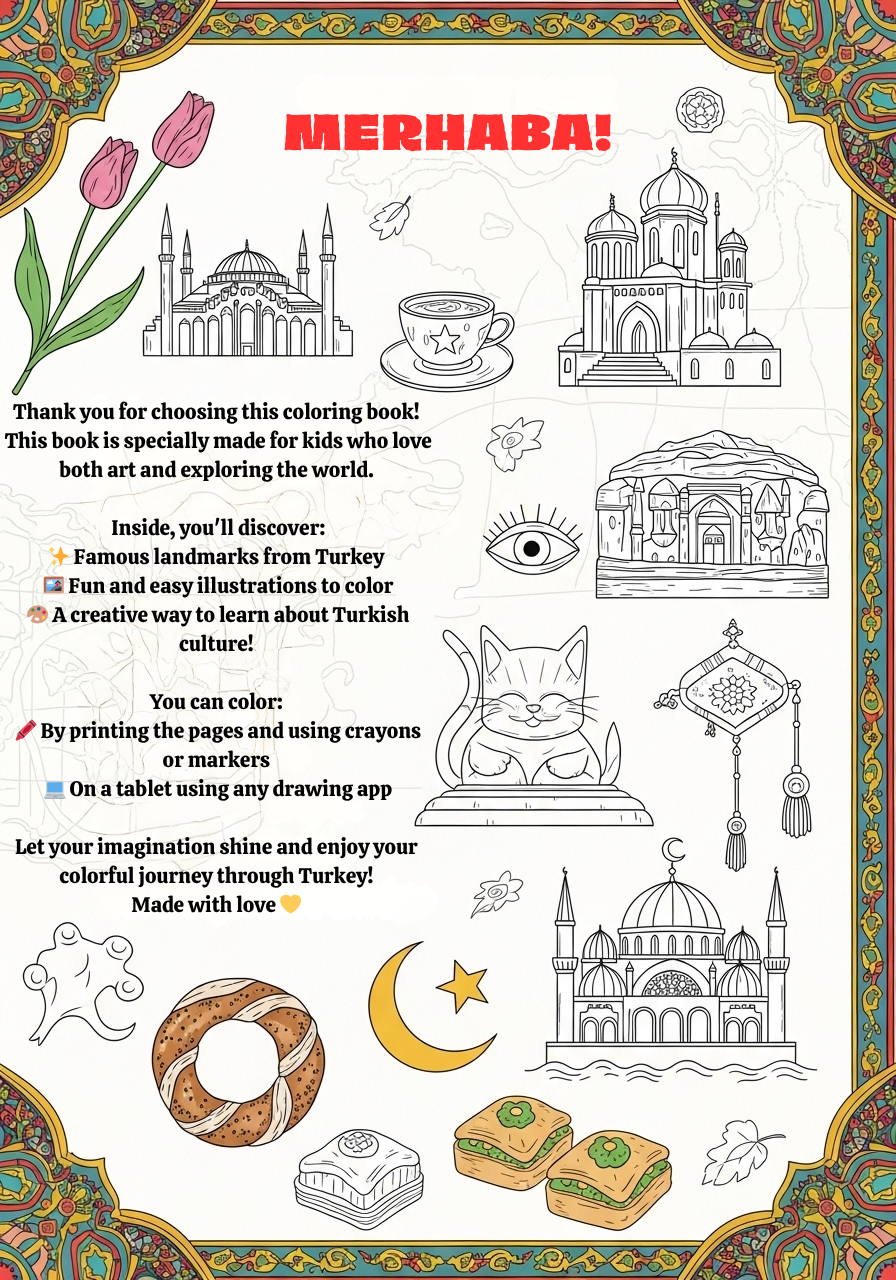 MERHABA!
Thank you for choosing this coloring book!
This book is specially made for kids who love
both art and exploring the world.
Inside, you'll discover:
✨ Famous landmarks from Turkey
🖼️ Fun and easy illustrations to color
🎨 A creative way to learn about Turkish
culture!
You can color:
🖍️ By printing the pages and using crayons
or markers
💻 On a tablet using any drawing app
Let your imagination shine and enjoy your
colorful journey through Turkey!
Made with love 💛